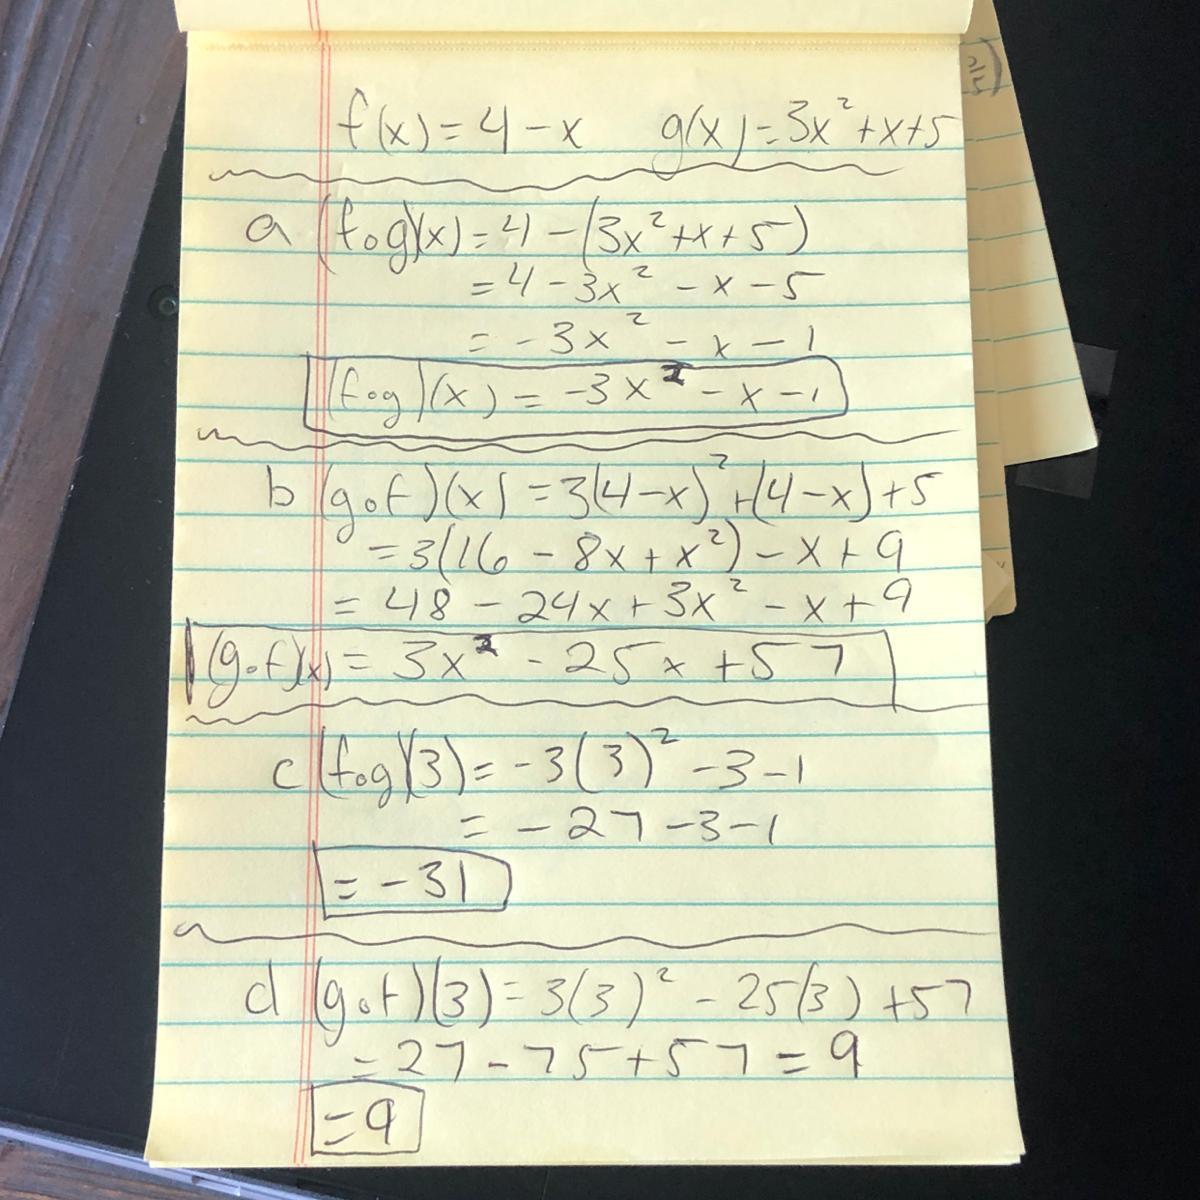 f(x) = 4 - x    g(x) = 3x² + x + 5
a (f∘g)(x) = 4 - (3x² + x + 5)
= 4 - 3x² - x - 5
= -3x² - x - 1
(f∘g)(x) = -3x² - x - 1
b (g∘f)(x) = 3(4-x)² + (4-x) + 5
= 3(16 - 8x + x²) - x + 9
= 48 - 24x + 3x² - x + 9
(g∘f)(x) = 3x² - 25x + 57
c (f∘g)(3) = -3(3)² - 3 - 1
= -27 - 3 - 1
= -31
d (g∘f)(3) = 3(3)² - 25(3) + 57
= 27 - 75 + 57 = 9
= 9